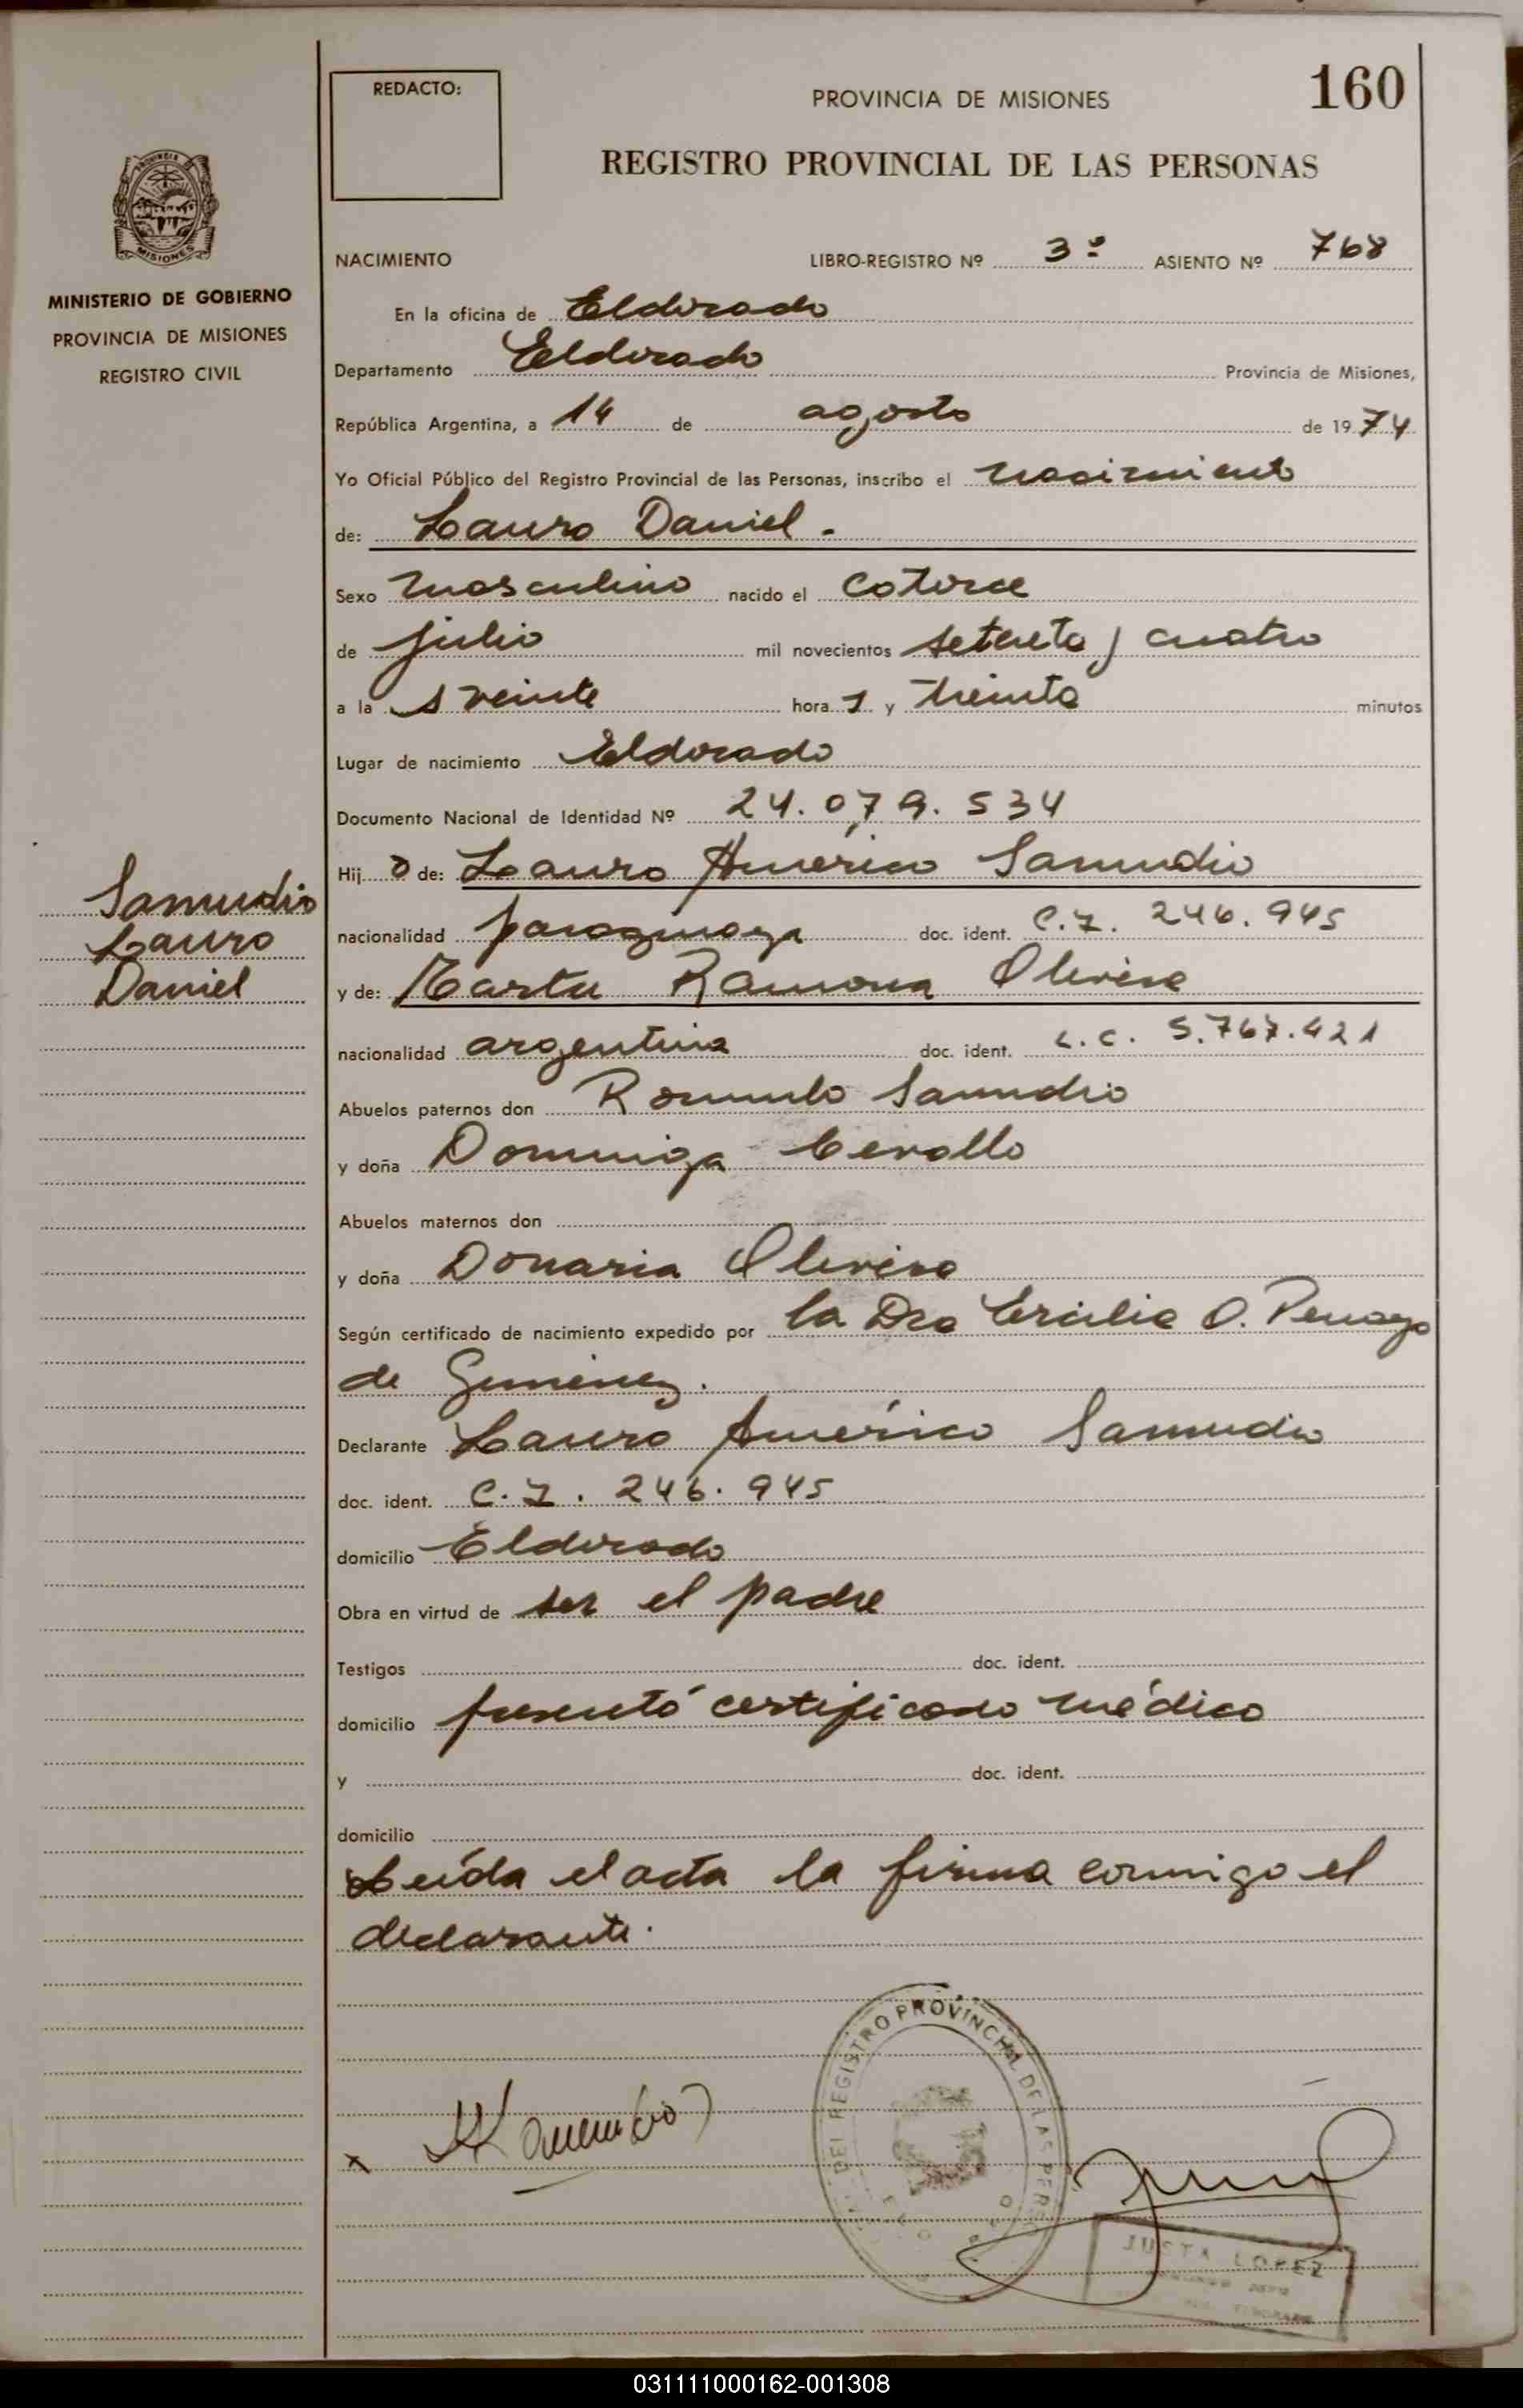 REDACTO:
PROVINCIA DE MISIONES
160
REGISTRO PROVINCIAL DE LAS PERSONAS
MISIONES
MINISTERIO DE GOBIERNO
PROVINCIA DE MISIONES
REGISTRO CIVIL
NACIMIENTO LIBRO-REGISTRO Nº 3º ASIENTO Nº 768
En la oficina de Eldorado
Departamento Eldorado Provincia de Misiones,
República Argentina, a 14 de agosto de 1974
Yo Oficial Público del Registro Provincial de las Personas, inscribo el nacimiento
de: Lauro Daniel.
Sexo masculino nacido el catorce
de julio mil novecientos setenta y cuatro
a la s veinte hora s y treinta minutos
Lugar de nacimiento Eldorado
Documento Nacional de Identidad Nº 24.079.534
Hij o de: Lauro Américo Samudio
Samudio
Lauro
Daniel
nacionalidad paraguaya doc. ident. C.I. 246.945
y de: Marta Ramona Olivera
nacionalidad argentina doc. ident. L.C. 5.767.421
Abuelos paternos don Romulo Samudio
y doña Dominga Cevallo
Abuelos maternos don
y doña Donaria Olivera
Según certificado de nacimiento expedido por la Dra Ercilia O. Penayo
de Gimenez.
Declarante Lauro Américo Samudio
doc. ident. C.I. 246.945
domicilio Eldorado
Obra en virtud de ser el padre
Testigos doc. ident.
domicilio presentó certificado médico
y doc. ident.
domicilio
Leída el acta la firma conmigo el
declarante.
DEL REGISTRO PROVINCIAL DE LAS PERS
x
JUSTA LOPEZ
031111000162-001308